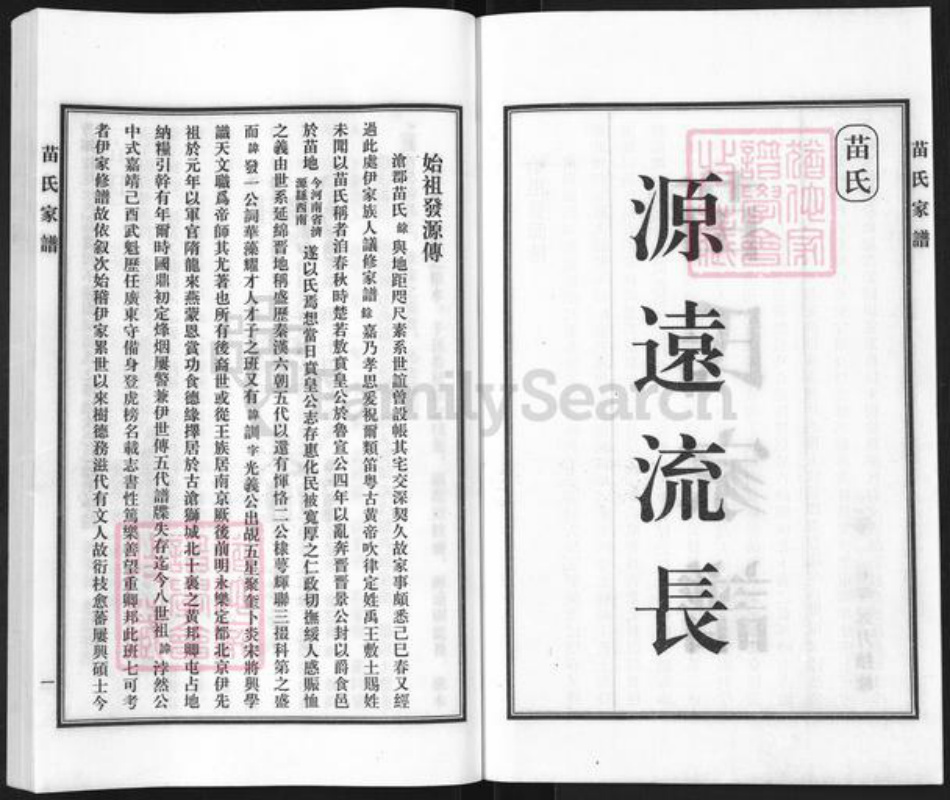 苗氏家譜
苗氏
源遠流長
始祖發源傳
滄郡苗氏餘與地距咫尺素系世誼曾設帳其宅交深契久故家事頗悉己巳春又經
過此處伊家族人議修家譜餘嘉乃孝思爰祝爾類笛粵古黃帝吹律定姓禹王敷土賜姓
未聞以苗氏稱者洎春秋時楚若敖賁皇公於魯宣公四年以亂奔晉晉景公封以爵食邑
於苗地今河南省濟源縣西南遂以氏焉想當日賁皇公志存惠化民被寬厚之仁政切撫綏人感賑恤
之義由世系延綿晉地稱盛歷秦漢六朝五代以還有惲恪二公棣萼輝聯三掇科第之盛
而諱發一公詞華藻耀才人才子之班又有諱訓字光義公出覘五星聚奎卜炎宋將興學
識天文職爲帝師其尤著也所有後裔世或從王族居南京厥後前明永樂定都北京伊先
祖於元年以軍官隋龍來燕蒙恩賞功食德緣擇居於古滄獅城北十裏之黃邦卿屯占地
納糧引幹有年爾時國鼎初定烽烟屢警兼伊世傳五代譜牒失存迄今八世祖諱誖然公
中式嘉靖己酉武魁歷任廣東守備身登虎榜名載志書性篤樂善望重卿邦此班七可考
者伊家修譜故依叙次始稽伊家累世以來樹德務滋代有文人故衍枝愈蕃屢興碩士今
苗氏家譜
一
FamilySearch